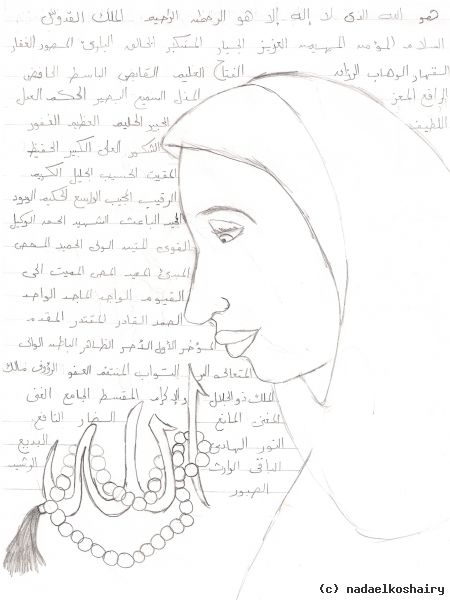 هو الله الذى لا إله إلا هو الرحمن الرحيم الملك القدوس
السلام المؤمن المهيمن العزيز الجبار المتكبر الخالق البارئ المصور الغفار
القهار الوهاب الرزاق الفتاح العليم القابض الباسط الخافض
الرافع المعز المذل السميع البصير الحكم العدل
اللطيف الخبير الحليم العظيم الغفور
الشكور العلى الكبير الحفيظ
المقيت الحسيب الجليل الكريم
الرقيب المجيب الواسع الحكيم الودود
المجيد الباعث الشهيد الحق الوكيل
القوى المتين الولى الحميد المحصى
المبدئ المعيد المحى المميت الحى
القيوم الواجد الماجد الواحد
الصمد القادر المقتدر المقدم
المؤخر الأول الآخر الظاهر الباطن الوالى
المتعالى البر التواب المنتقم العفو الرؤوف مالك
الملك ذو الجلال والإكرام المقسط الجامع الغنى
المغنى المانع الضار النافع
النور الهادى البديع
الباقى الوارث الرشيد
الصبور
الله
(c) nadaelkoshairy